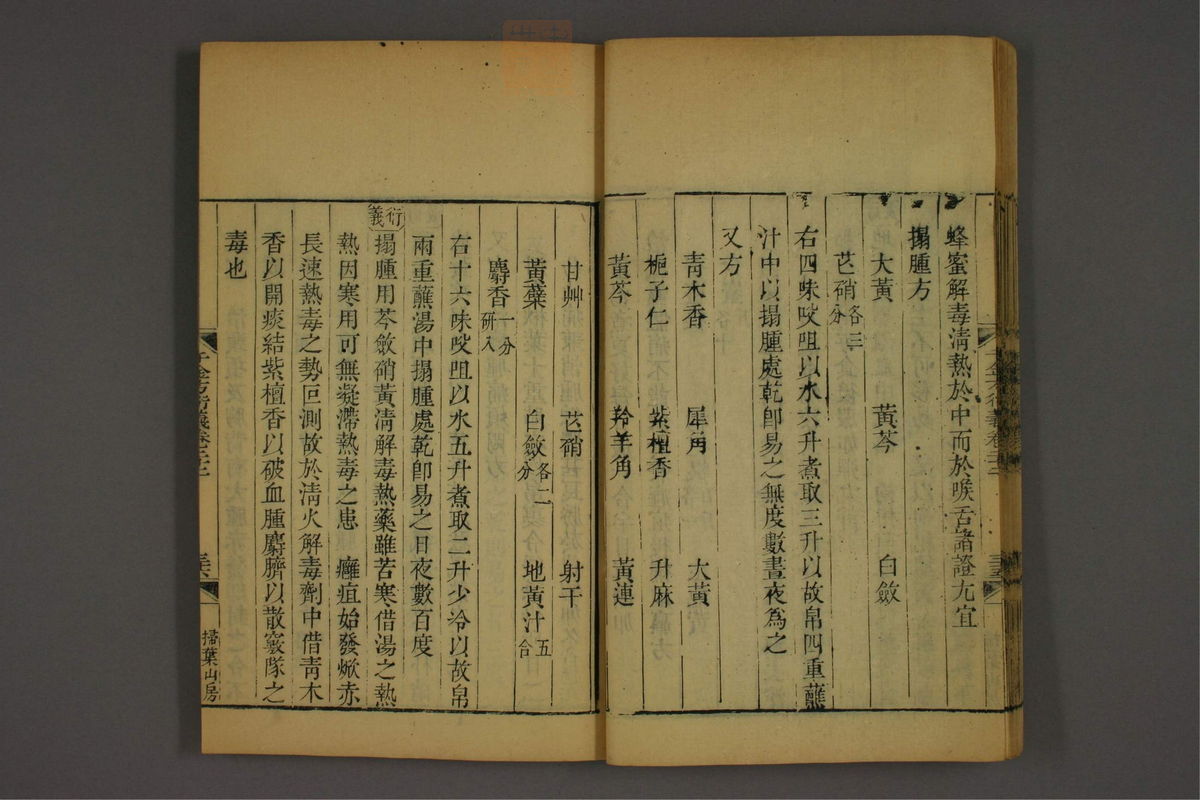 蜂蜜解毒淸熱於中而於喉舌諸證尤宜
搨腫方
大黃 黃芩 白斂
芒硝各三分
右四味㕮咀以水六升煮取三升以故帛四重蘸
汁中以搨腫處乾卽易之無度數晝夜爲之
又方
靑木香 犀角 大黃
梔子仁 紫檀香 升麻
黃芩 羚羊角 黃連
甘艸 芒硝 射干
黃蘗 白斂各二分 地黃汁五合
麝香一分研入
右十六味㕮咀以水五升煮取二升少冷以故帛
兩重蘸湯中搨腫處乾卽易之日夜數百度
衍義
搨腫用芩斂硝黃淸解毒熱藥雖苦寒借湯之熱
熱因寒用可無凝滯熱毒之患 癰疽始發焮赤
長速熱毒之勢叵測故於淸火解毒劑中借靑木
香以開痰結紫檀香以破血腫麝臍以散竅隊之
毒也
千金方衍義卷二十二
掃葉山房